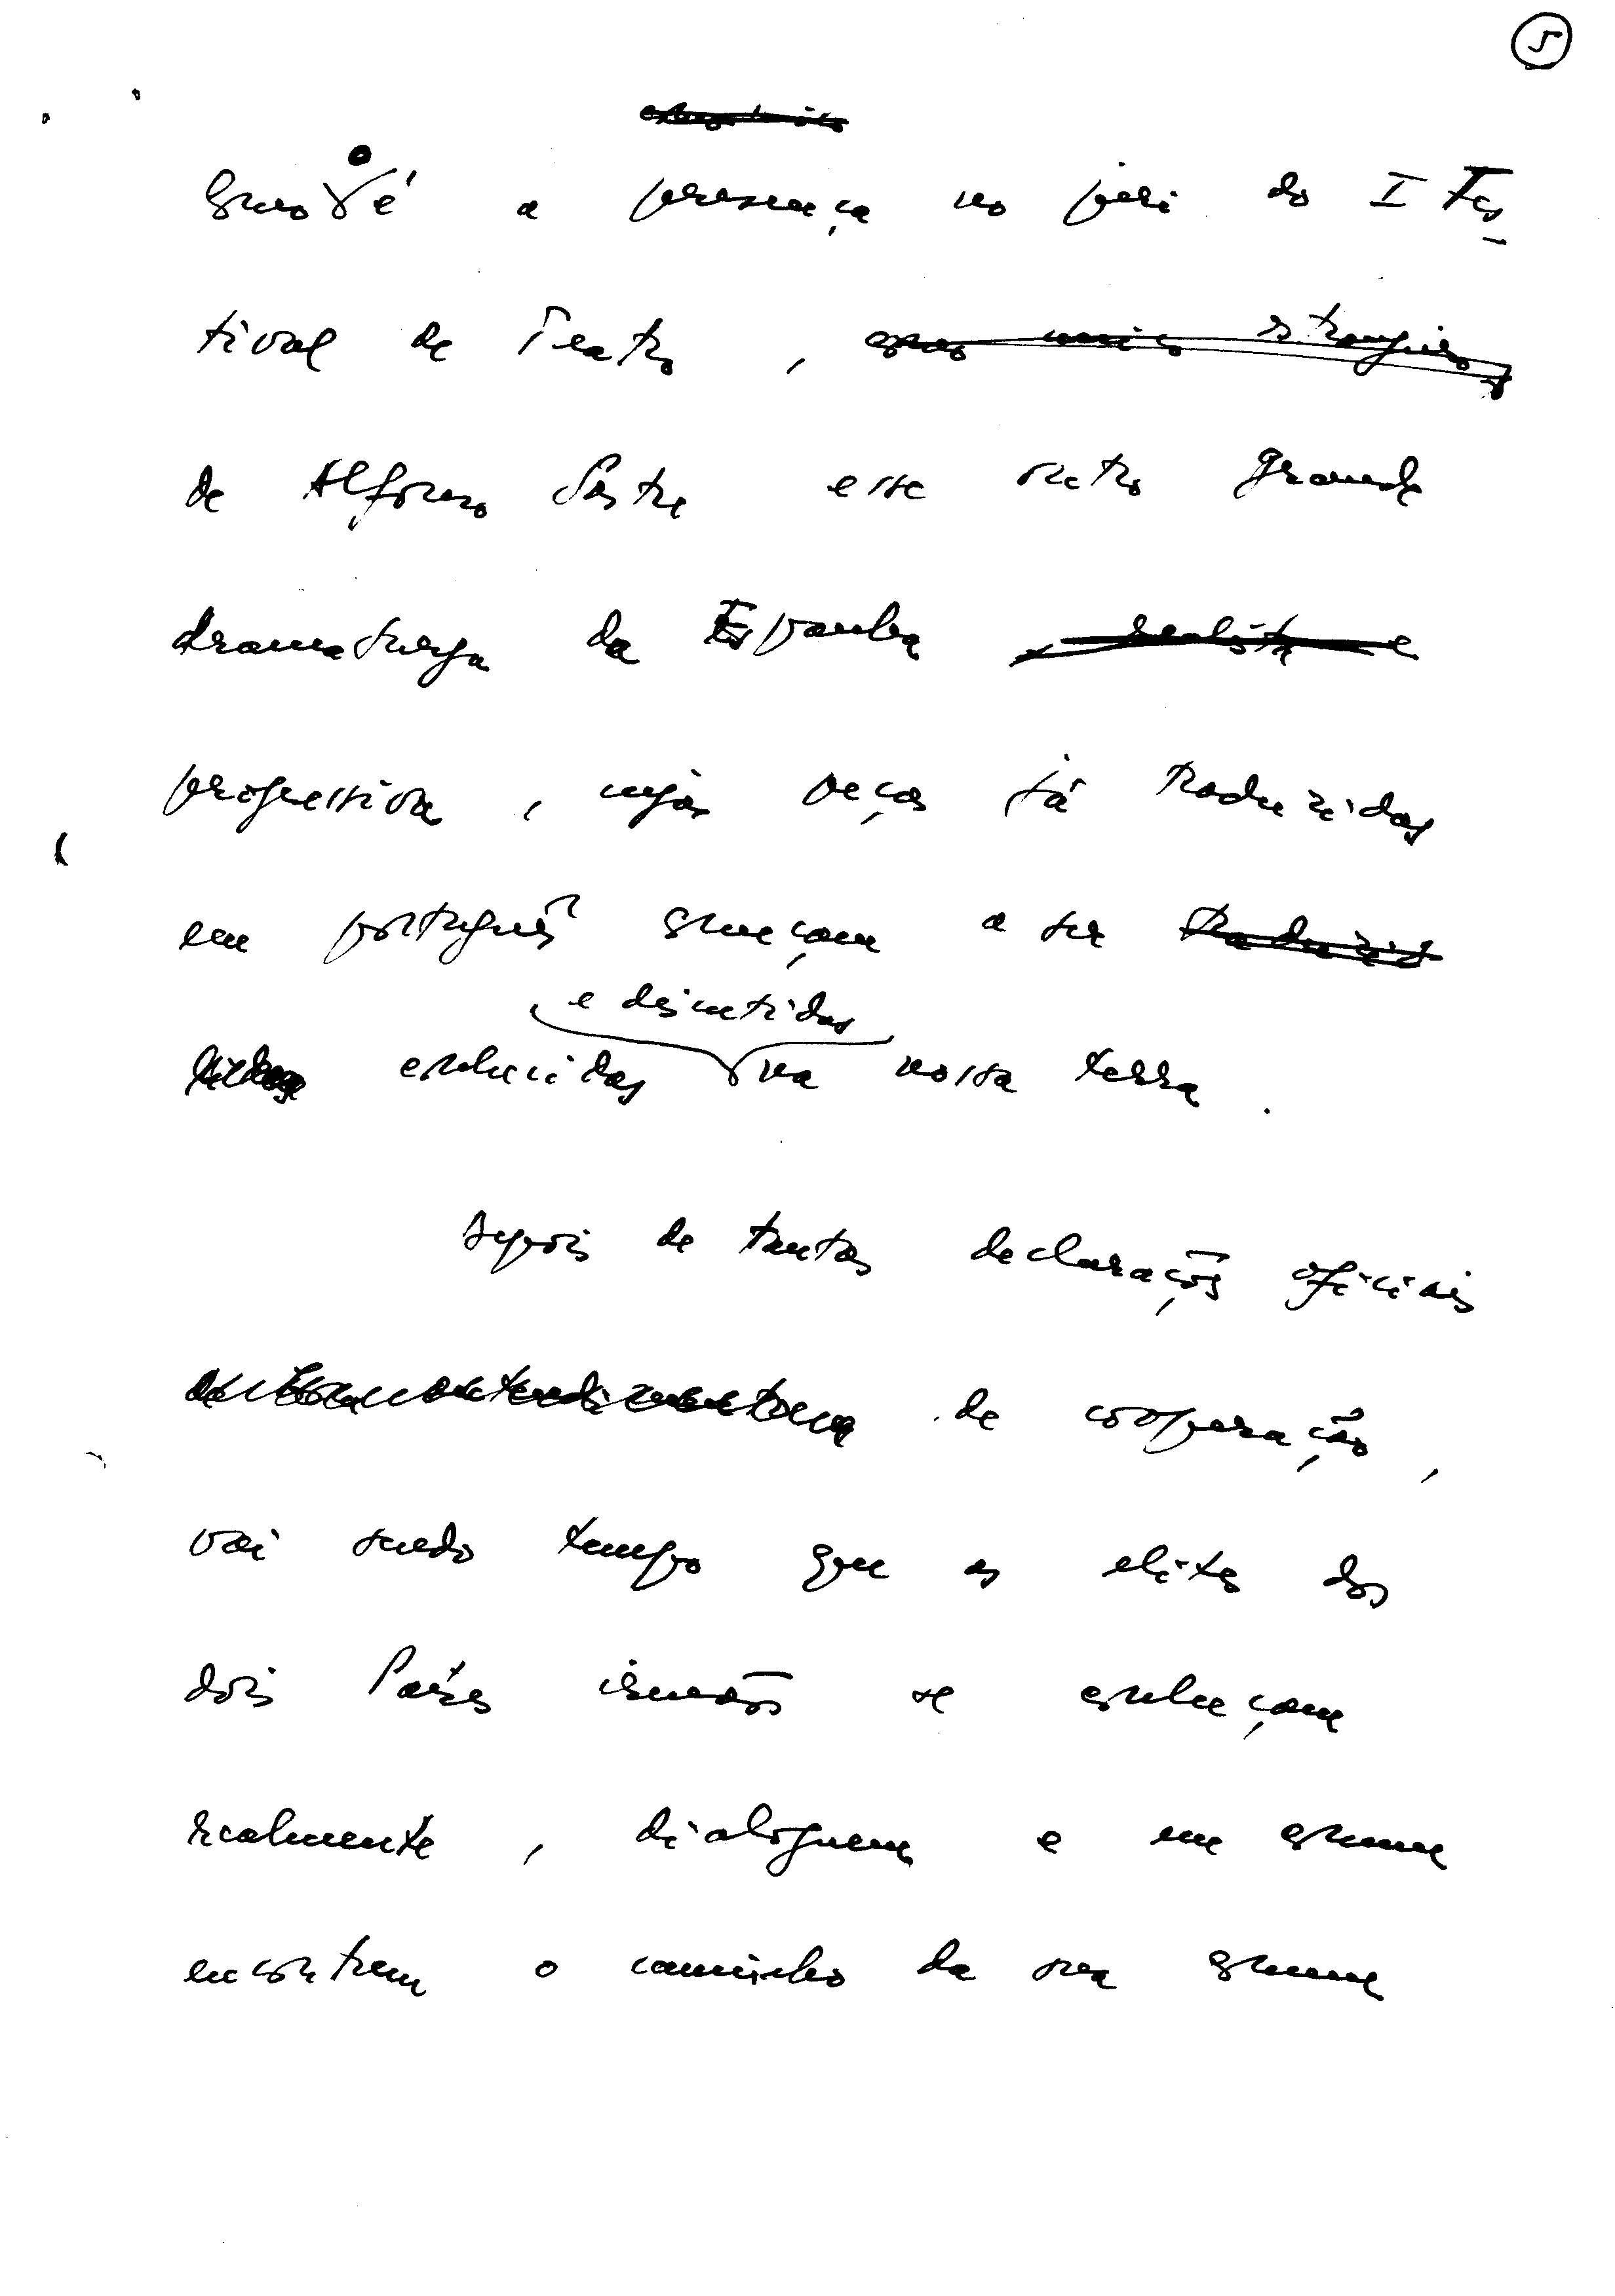 5
como o é a presença no júri do I Fes-
tival de Teatro, como único estrangeiro,
de Alfonso Sastre esse outro grande
dramaturgo da Espanha realista e
progressiva, cujas peças já traduzidas
em português começam a ser traduzid
e discutidas
lidas conhecidas na nossa terra.
Depois de tantas declarações oficiais
de cooperação,
vai sendo tempo que as elites dos
dois Países irmãos se conheçam
realmente, dialoguem e em comum
encontrem o caminho da sua comum